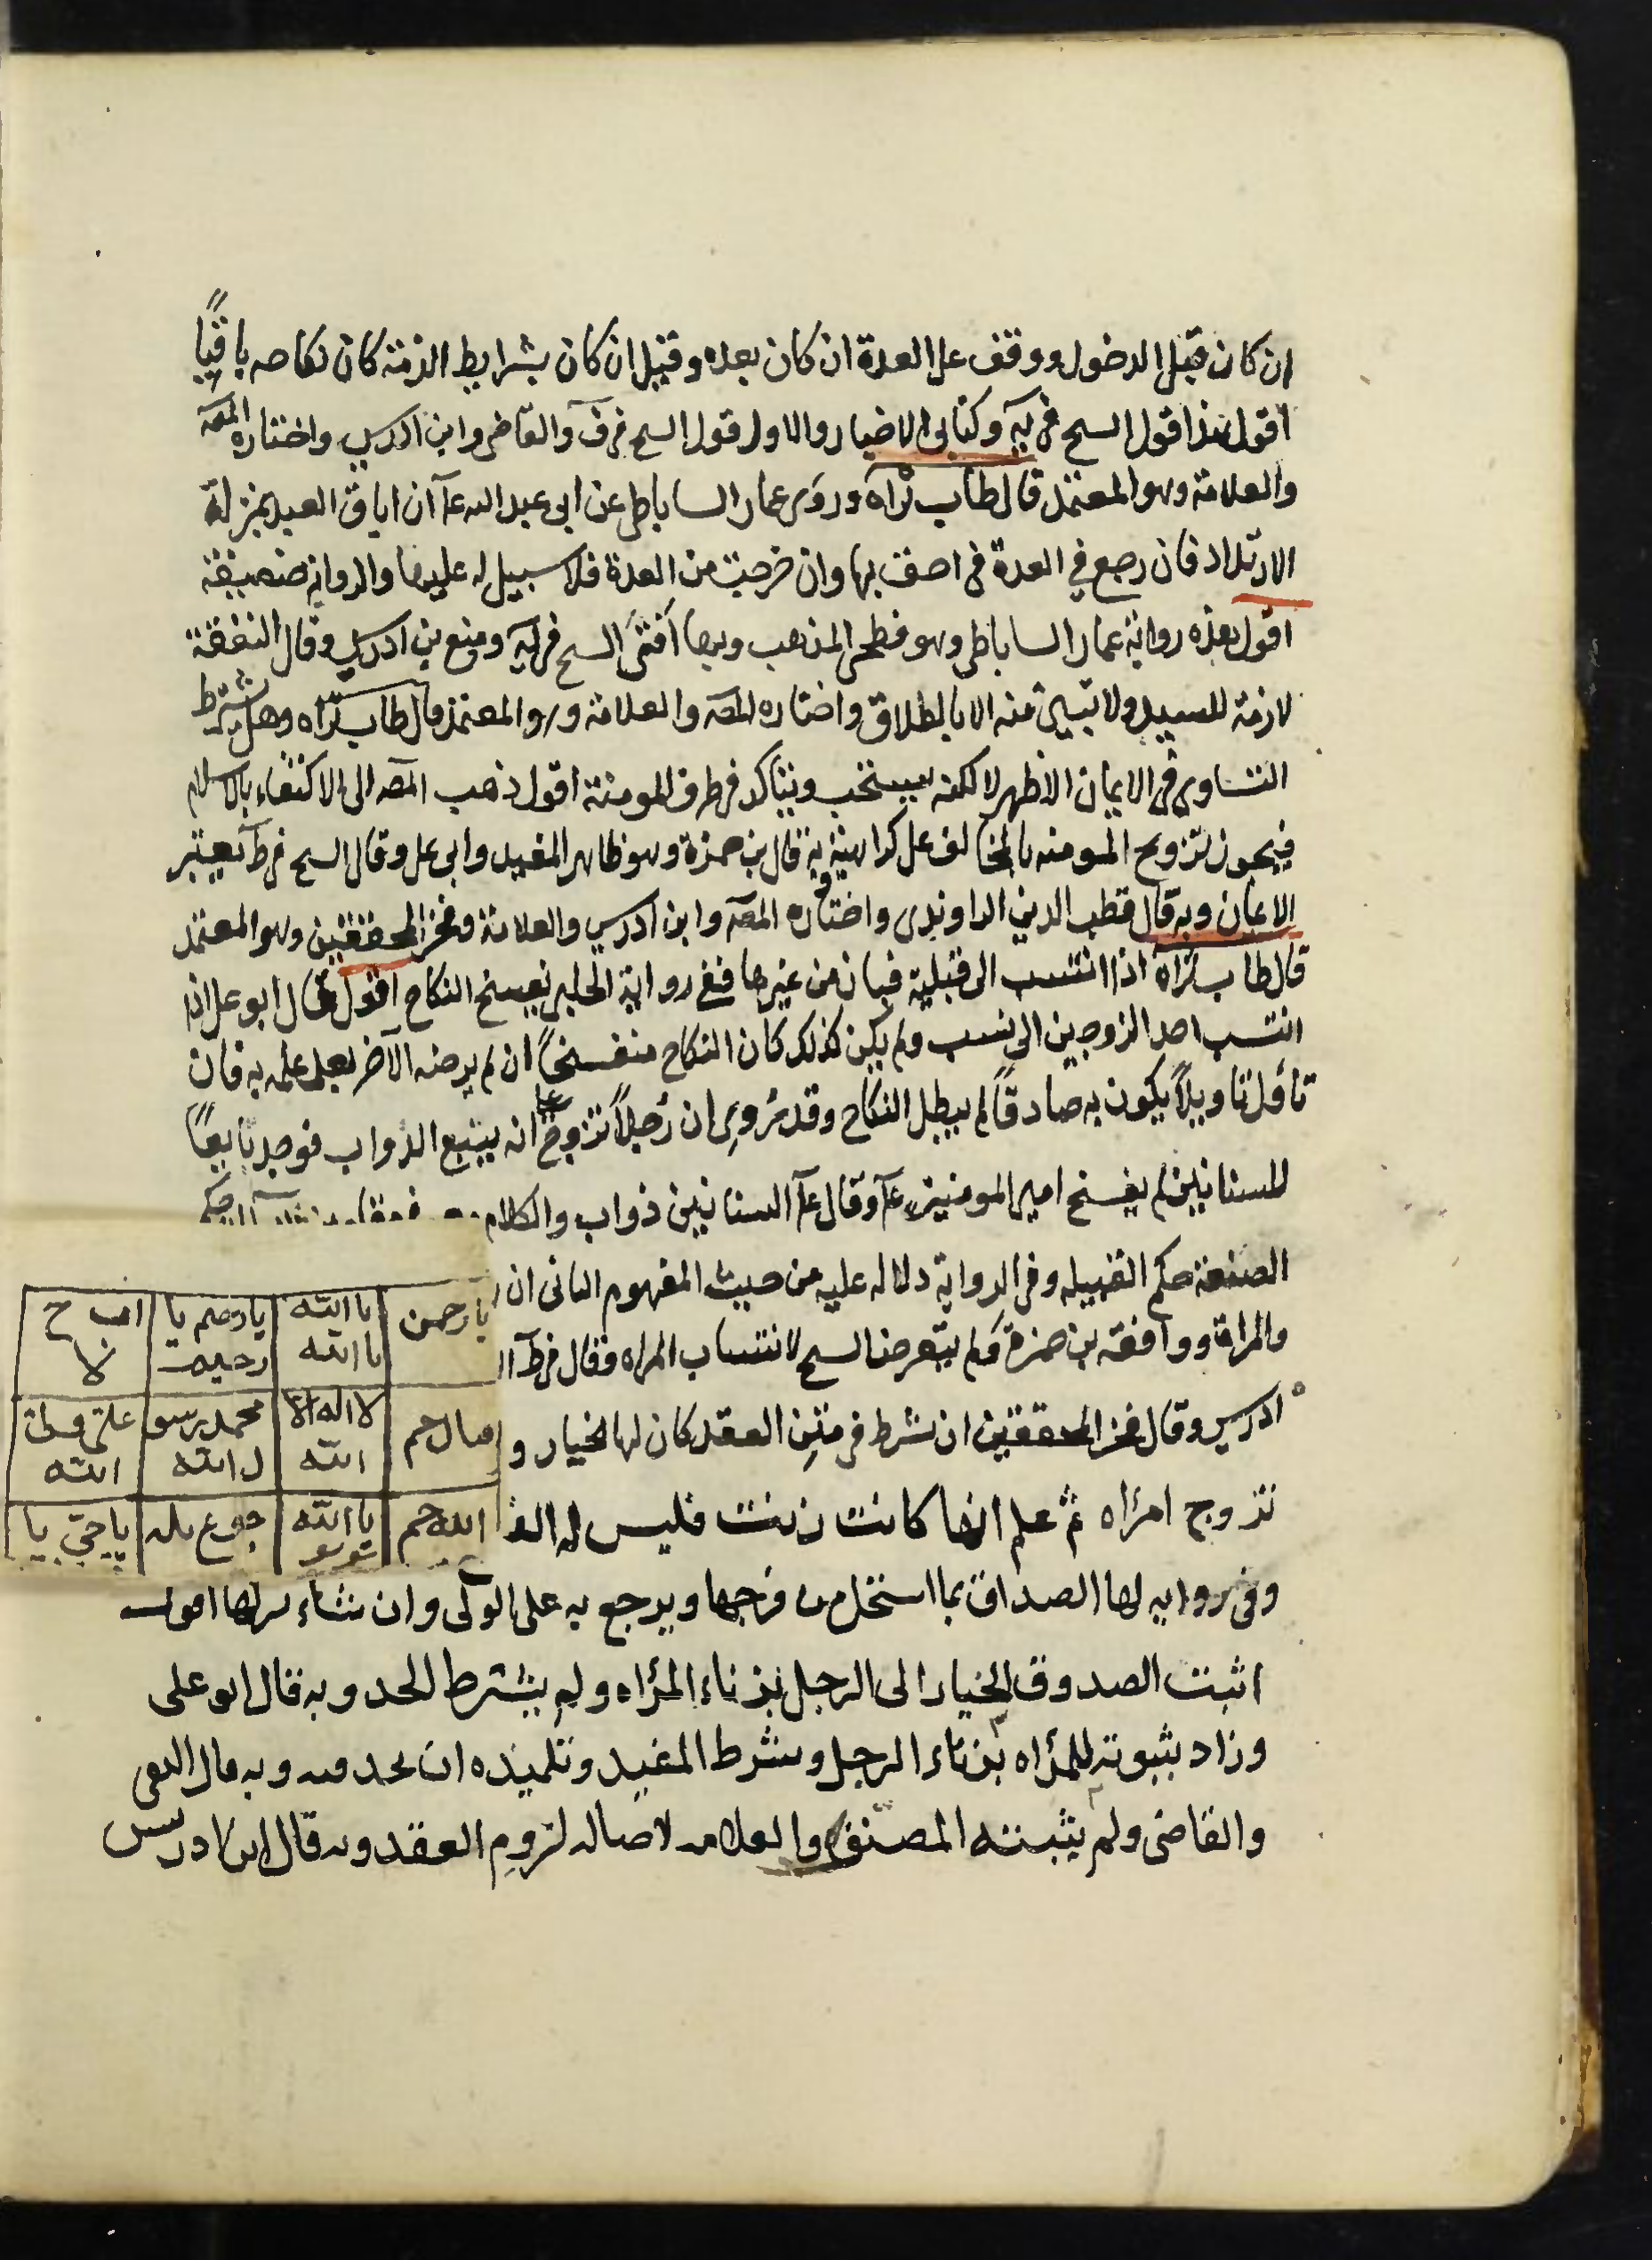 ان كان قبل الدخول ووقف على العدة ان كان بعده وقيل ان كان بشرايط الذمة كان نكاحه باقيًا
اقول هذا قول الشيخ في يه وكتابي الاخبار والاول قول الشيخ في ف والقاضي وابن ادريس واختاره المصه
والعلامة وهو المعتمد قال طاب ثراه وروى عمار الساباطي عن ابي عبد الله ع ان اباق العبد بمنزلة
الارتداد فان رجع في العدة فهي احق بها وان خرجت من العدة فلا سبيل له عليها والرواية ضعيفة
اقول هذه رواية عمار الساباطي وهو فطحي المذهب وبها افتى الشيخ في يه ومنع بن ادريس وقال النفقة
لازمة للسيد ولا تبين منه الا بالطلاق واختاره المصه والعلامة وهو المعتمد قال طاب ثراه وهل يشترط
التساوي في الايمان الاظهر لا لكنه يستحب ويتاكد في طرف المومنة اقول ذهب المصه الى الاكتفاء بالاسلام
فيجوز تزويج المومنه بالمخالف على كراهية به قال بن حمزة وهو ظاهر المفيد وابي علي وقال الشيخ في ط يعتبر
الايمان وبه قال قطب الدين الراوندى واختاره المصه وابن ادريس والعلامة وفخر المحققين وهو المعتمد
قال طاب ثراه اذا انتسب الى قبلية فبان من غيرها ففي رواية الحلبي يفسخ النكاح اقول قال ابو علي اذا
انتسب احد الزوجين الى نسب ولم يكن كذلك كان النكاح منفسخًا ان لم يرضه الآخر بعد علمه به فان
تاول تاويلًا يكون به صادقًا لم يبطل النكاح وقد رُوي ان رُجلًا تزوج على انه يبيع الدواب فوجد بايعًا
للسنانير لم يفسخ امير المومنين ع وقال ع السنانير دواب والكلام
الصنعة حكم القبيله وفي الرواية دلاله عليه من حيث المفهوم الثانى ان
والمراة ووافقه بن حمزة ولم يتعرض الشيخ لانتساب المراه وقال في ط
ادريس وقال فخر المحققين ان شرط في متن العقد كان لها الخيار و
تزوج امراه ثم علم انها كانت زنت فليس له
وفي روايه لها الصداق بما استحل من فرجها ويرجع به على الولى وان شاء تركها اقول
اثبت الصدوق الخيار الى الرجل بزناء المرٔاه ولم يشترط الحد وبه قال ابو على
وزاد بثبوته للمرٔاه بزناء الرجل وشرط المفيد وتلميذه ان يحد فيه وبه قال التقى
والقاضى ولم يثبته المصنف والعلامه لاصاله لزوم العقد وبه قال ابن ادريس
يا رحمن | يا الله يا الله | يا رحيم يا رحيم
لا اله الا الله | محمد رسو ل الله | على ولى الله
يا الله | يا حيّ يا